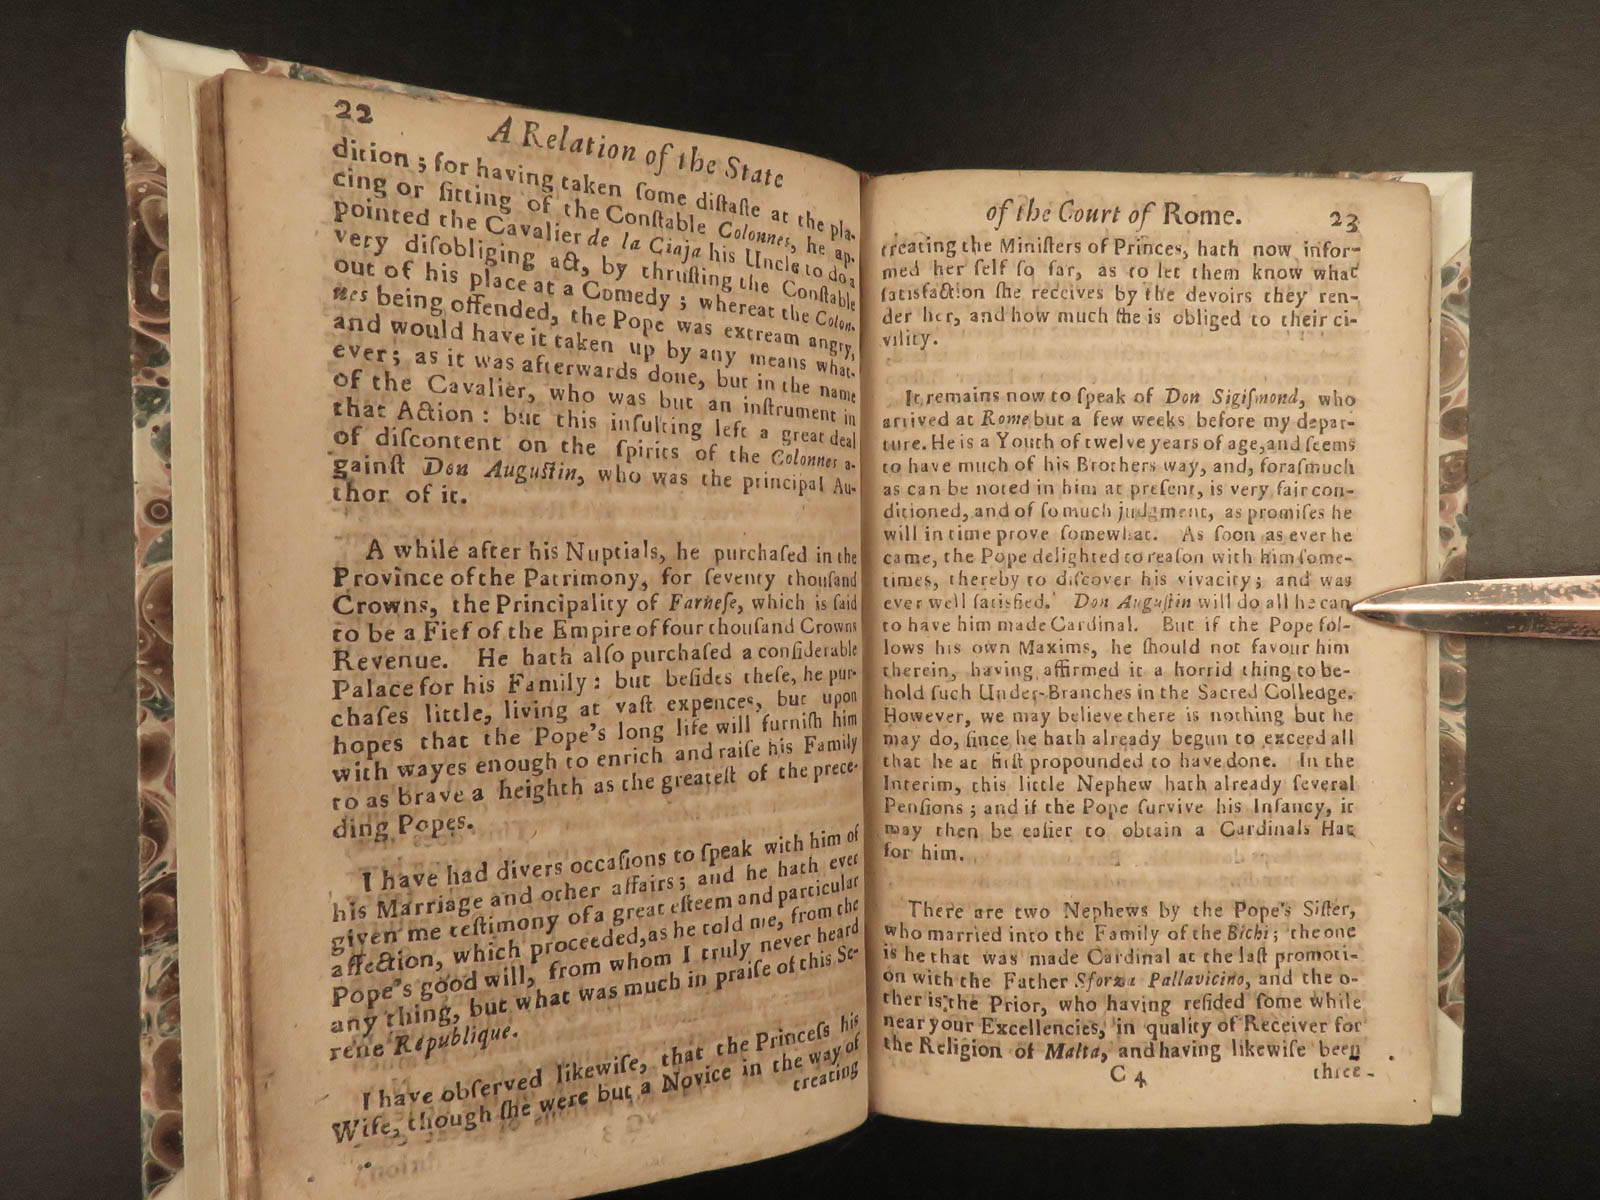 22
A Relation of the State
dition; for having taken ſome diſtaſte at the pla-
cing or ſitting of the Conſtable Colonnes, he ap-
pointed the Cavalier de la Ciaja his Uncle to do a
very diſobliging act, by thruſting the Conſtable
out of his place at a Comedy; whereat the Colon-
nes being offended, the Pope was extream angry,
and would have it taken up by any means what-
ever; as it was afterwards done, but in the name
of the Cavalier, who was but an inſtrument in
that Action: but this inſulting left a great deal
of diſcontent on the ſpirits of the Colonnes a-
gainſt Don Auguſtin, who was the principal Au-
thor of it.
A while after his Nuptials, he purchaſed in the
Province of the Patrimony, for ſeventy thouſand
Crowns, the Principality of Farneſe, which is ſaid
to be a Fief of the Empire of four thouſand Crowns
Revenue. He hath alſo purchaſed a conſiderable
Palace for his Family: but beſides theſe, he pur-
chaſes little, living at vaſt expences, but upon
hopes that the Pope's long life will furniſh him
with wayes enough to enrich and raiſe his Family
to as brave a heighth as the greateſt of the prece-
ding Popes.
I have had divers occaſions to ſpeak with him of
his Marriage and other affairs; and he hath ever
given me teſtimony of a great eſteem and particular
affection, which proceeded, as he told me, from the
Pope's good will, from whom I truly never heard
any thing, but what was much in praiſe of this Se-
rene Republique.
I have obſerved likewiſe, that the Princeſs his
Wife, though ſhe were but a Novice in the way of
treating
of the Court of Rome. 23
treating the Miniſters of Princes, hath now infor-
med her ſelf ſo far, as to let them know what
ſatisfaction ſhe receives by the devoirs they ren-
der her, and how much ſhe is obliged to their ci-
vility.
It remains now to ſpeak of Don Sigiſmond, who
arrived at Rome but a few weeks before my depar-
ture. He is a Youth of twelve years of age, and ſeems
to have much of his Brothers way, and, foraſmuch
as can be noted in him at preſent, is very fair con-
ditioned, and of ſo much judgment, as promiſes he
will in time prove ſomewhat. As ſoon as ever he
came, the Pope delighted to reaſon with him ſome-
times, thereby to diſcover his vivacity; and was
ever well ſatisfied. Don Auguſtin will do all he can
to have him made Cardinal. But if the Pope fol-
lows his own Maxims, he ſhould not favour him
therein, having affirmed it a horrid thing to be-
hold ſuch Under-Branches in the Sacred Colledge.
However, we may believe there is nothing but he
may do, ſince he hath already begun to exceed all
that he at firſt propounded to have done. In the
Interim, this little Nephew hath already ſeveral
Penſions; and if the Pope ſurvive his Infancy, it
may then be eaſier to obtain a Cardinals Hat
for him.
There are two Nephews by the Pope's Siſter,
who married into the Family of the Bichi; the one
is he that was made Cardinal at the laſt promoti-
on with the Father Sforza Pallavicino, and the o-
ther is the Prior, who having reſided ſome while
near your Excellencies, in quality of Receiver for
the Religion of Malta, and having likewiſe been
C 4 three